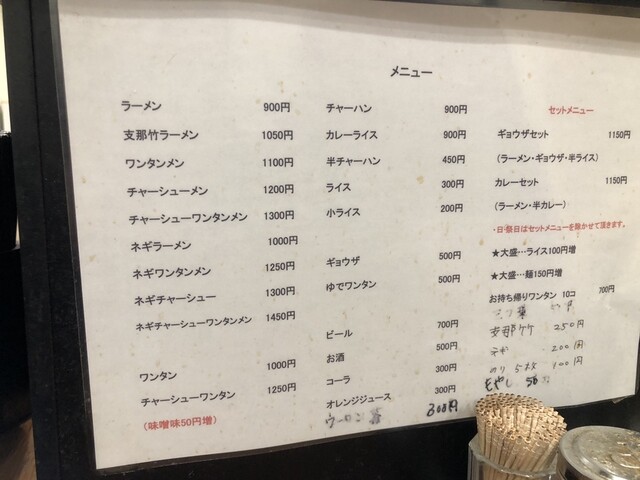 メニュー
ラーメン 900円
支那竹ラーメン 1050円
ワンタンメン 1100円
チャーシューメン 1200円
チャーシューワンタンメン 1300円
ネギラーメン 1000円
ネギワンタンメン 1250円
ネギチャーシュー 1300円
ネギチャーシューワンタンメン 1450円
ワンタン 1000円
チャーシューワンタン 1250円
(味噌味50円増)
チャーハン 900円
カレーライス 900円
半チャーハン 450円
ライス 300円
小ライス 200円
ギョウザ 500円
ゆでワンタン 500円
ビール 700円
お酒 500円
コーラ 300円
オレンジジュース 300円
ウーロン茶 300円
セットメニュー
ギョウザセット 1150円
(ラーメン・ギョウザ・半ライス)
カレーセット 1150円
(ラーメン・半カレー)
・日・祭日はセットメニューを除かせて頂きます。
★大盛…ライス100円増
★大盛…麺150円増
お持ち帰りワンタン 10コ 700円
支那竹 250円
ネギ 200円
のり 5枚 100円
もやし 50